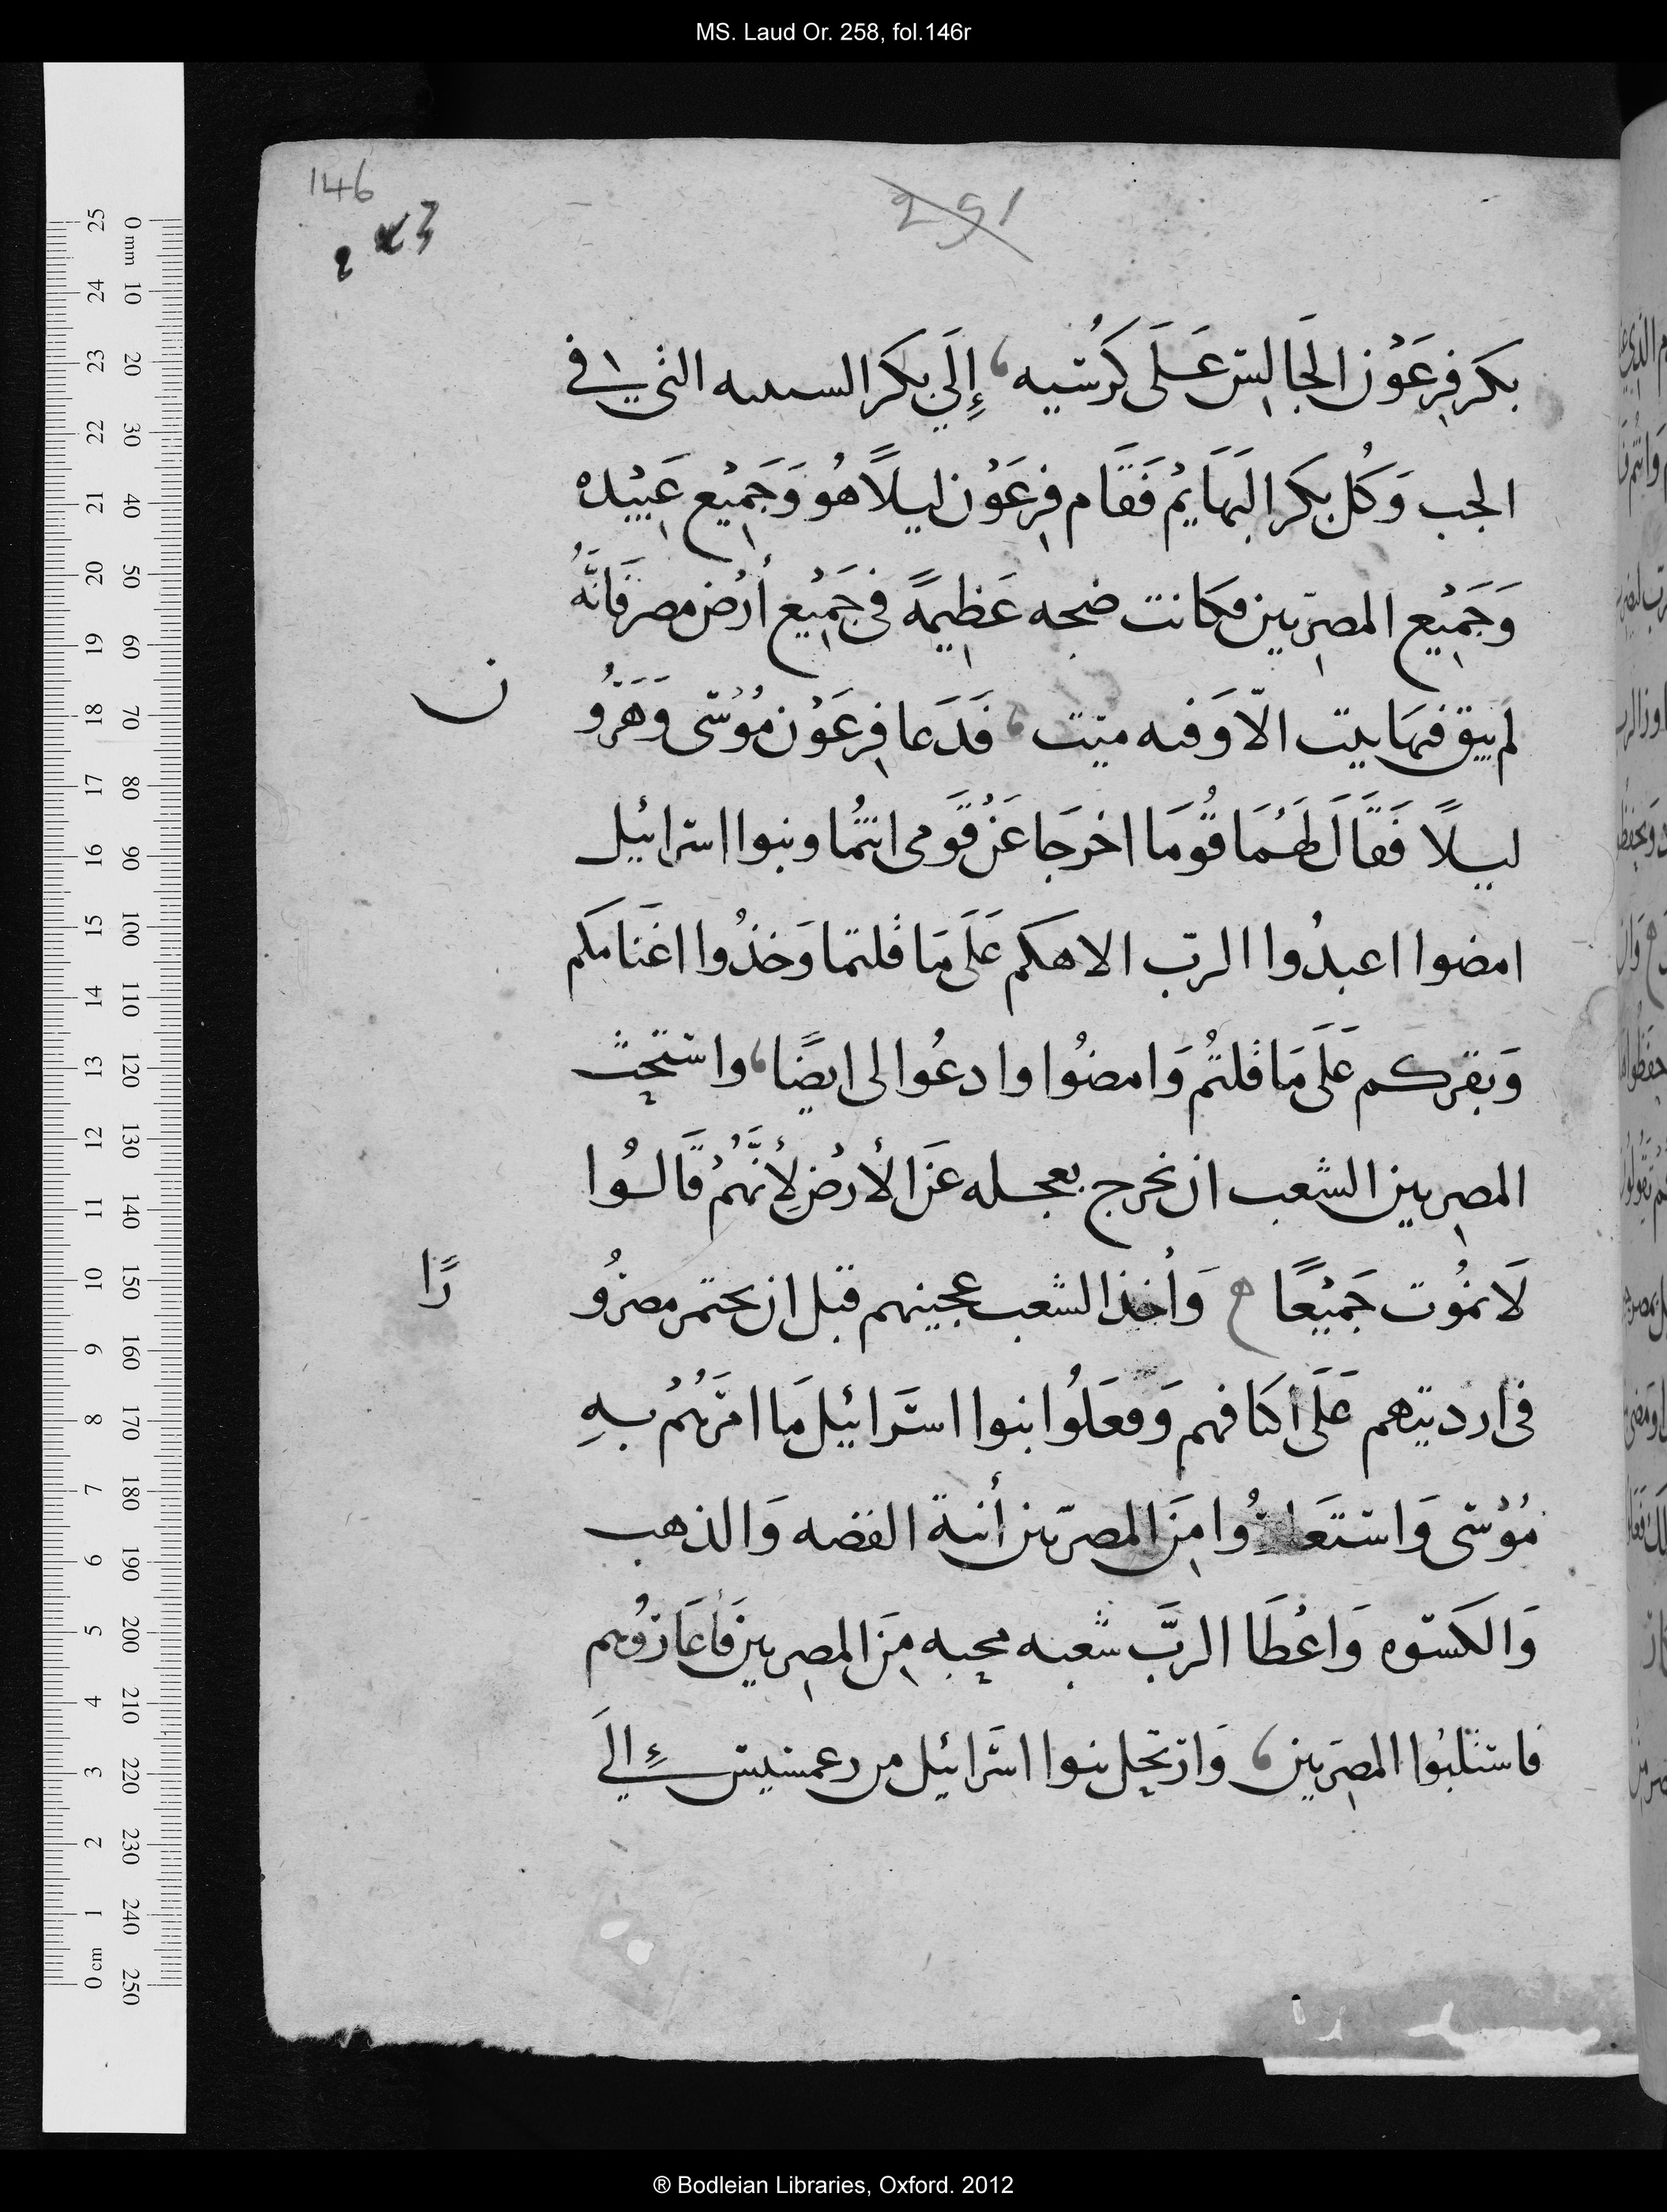 MS. Laud Or. 258, fol.146r
146
291
بكر فِرعَوْن الجَالِس عَلَى كرُسيه إِلَي بكر السبيه التي في
الجب وَكُل بكر البَهَايمُ فَقَام فِرعَوْن ليلاً هُو وَجَمِيْع عَبِيْده
وَجَمِيْع المصِريين فكانت ضجه عَظِيمةً في جَمِيْع أرْض مصر فَانَّهُ
لم يبق فيهَا بيت الاّ وَفيه ميّت فَدَعا فِرعَوْن مُوْسَى وَهَرُو
ن
ليلاً فَقَال لَهُمَا قُومَا اخرجَا عَنْ قَومى انتُما وبنوا اسرائيل
امضوا اعبدُوا الربّ الاهكم عَلَى مَا قلتما وَخذُوا اغَنامكم
وَبقركم عَلَى مَا قلتُم وَامضُوا وادعُوا لى ايضًا واستحث
المصِريين الشعب ان يخرج بعجله عَن الأرْض لِأنَّهُمْ قَالُوا
لَا نمُوت جَمْيعًا ه وَأخذ الشعب عجينهم قبل ان يختمر مصرُو
رًا
فى ارديتهم عَلَى اكتافهم وَفعَلُوا بنوا اسرَائيل مَا امرَهُمْ بهِ
مُوْسَى وَاستَعَارُوا مِنَ المصرّيين أنية الفضه وَالذهب
وَالكَسوه وَاعْطَا الربَّ شعبه محبه مِنَ المصِريين فأعَارُوهم
فاستلبُوا المصِرَيين وَارتحل بنوا اسرَائيل من رعمسيس إِلَي
® Bodleian Libraries, Oxford. 2012